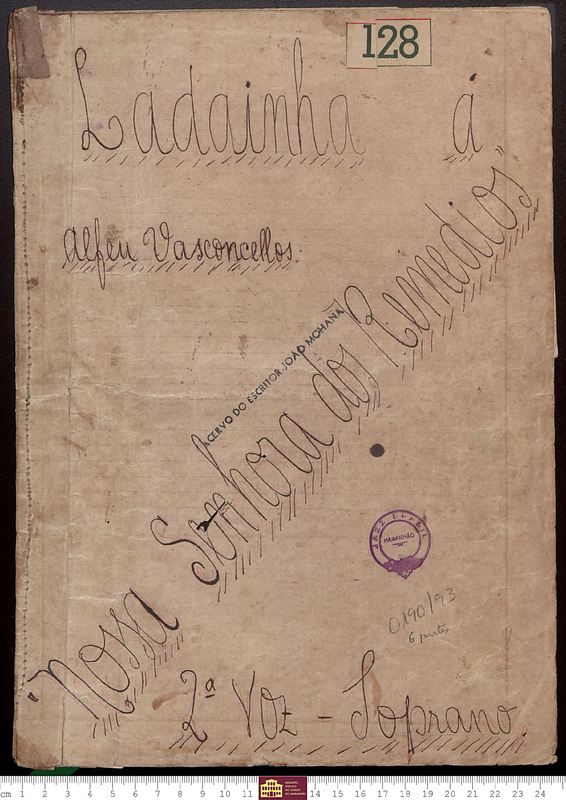 128
Ladainha á
Alfeu Vasconcellos
"Nossa Senhora dos Remedios"
ACERVO DO ESCRITOR JOÃO MOHANA
JAZZ
MARANHÃO
0190/93
6 partes
2ª Voz - Soprano.
cm 1 2 3 4 5 6 7 8 9 10 11 14 15 16 17 18 19 20 21 22 23 24
ARQUIVO PÚBLICO DO ESTADO DO MARANHÃO